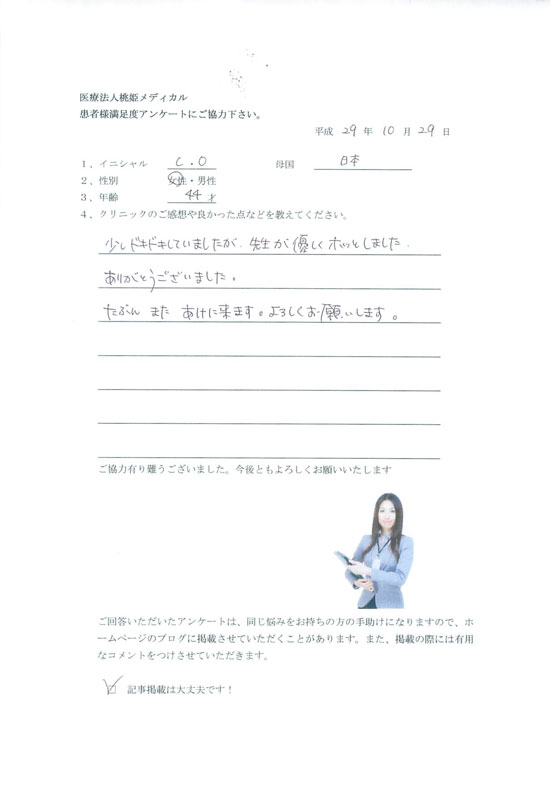 医療法人桃姫メディカル
患者様満足度アンケートにご協力下さい。
平成 29 年 10 月 29 日
1、イニシャル C.O 母国 日本
2、性別 女性・男性
3、年齢 44 才
4、クリニックのご感想や良かった点などを教えてください。
少しドキドキしていましたが、先生が優しくホッとしました。
ありがとうございました。
たぶん また あけに来ます。よろしくお願いします。
ご協力有り難うございました。今後ともよろしくお願いいたします
ご回答いただいたアンケートは、同じ悩みをお持ちの方の手助けになりますので、ホ
ームページのブログに掲載させていただくことがあります。また、掲載の際には有用
なコメントをつけさせていただきます。
記事掲載は大丈夫です！